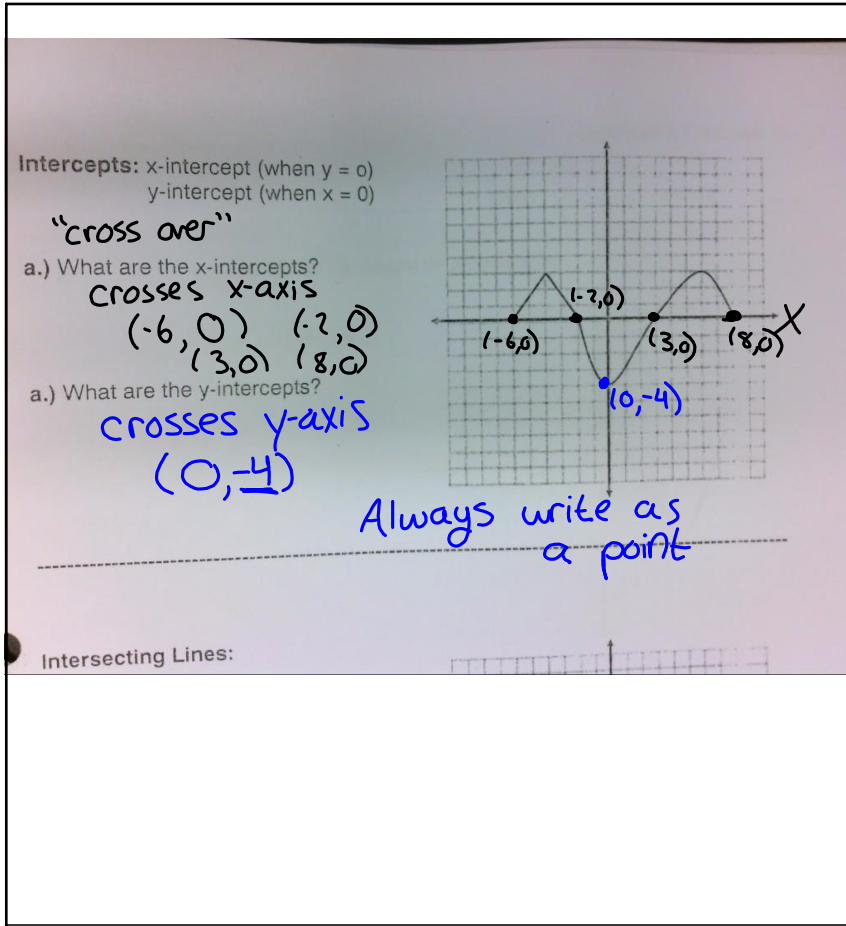 Intercepts: x-intercept (when y = o)
y-intercept (when x = 0)
"cross over"
a.) What are the x-intercepts?
crosses x-axis
(-6,0) (-2,0)
(3,0) (8,0)
a.) What are the y-intercepts?
crosses y-axis
(0,-4)
(-2,0)
X
(-6,0) (3,0) (8,0)
(0,-4)
Always write as
a point
Intersecting Lines: